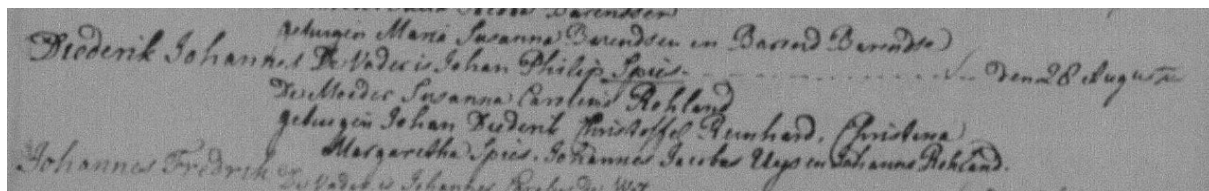 Jacoba Barendsen
getuigen Maria Susanna Barendsen en Barend Barendse
Diederik Johannes De Vader is Johan Philip Spies den 28 August
De Moeder Susanna Carolina Rohland
getuigen Johan Diederik Christoffel Reinhard, Christina
Margaretha Spies, Johannes Jacobus Uys en Johanna Rohland.
Johannes Fredrik De Vader is Johannes